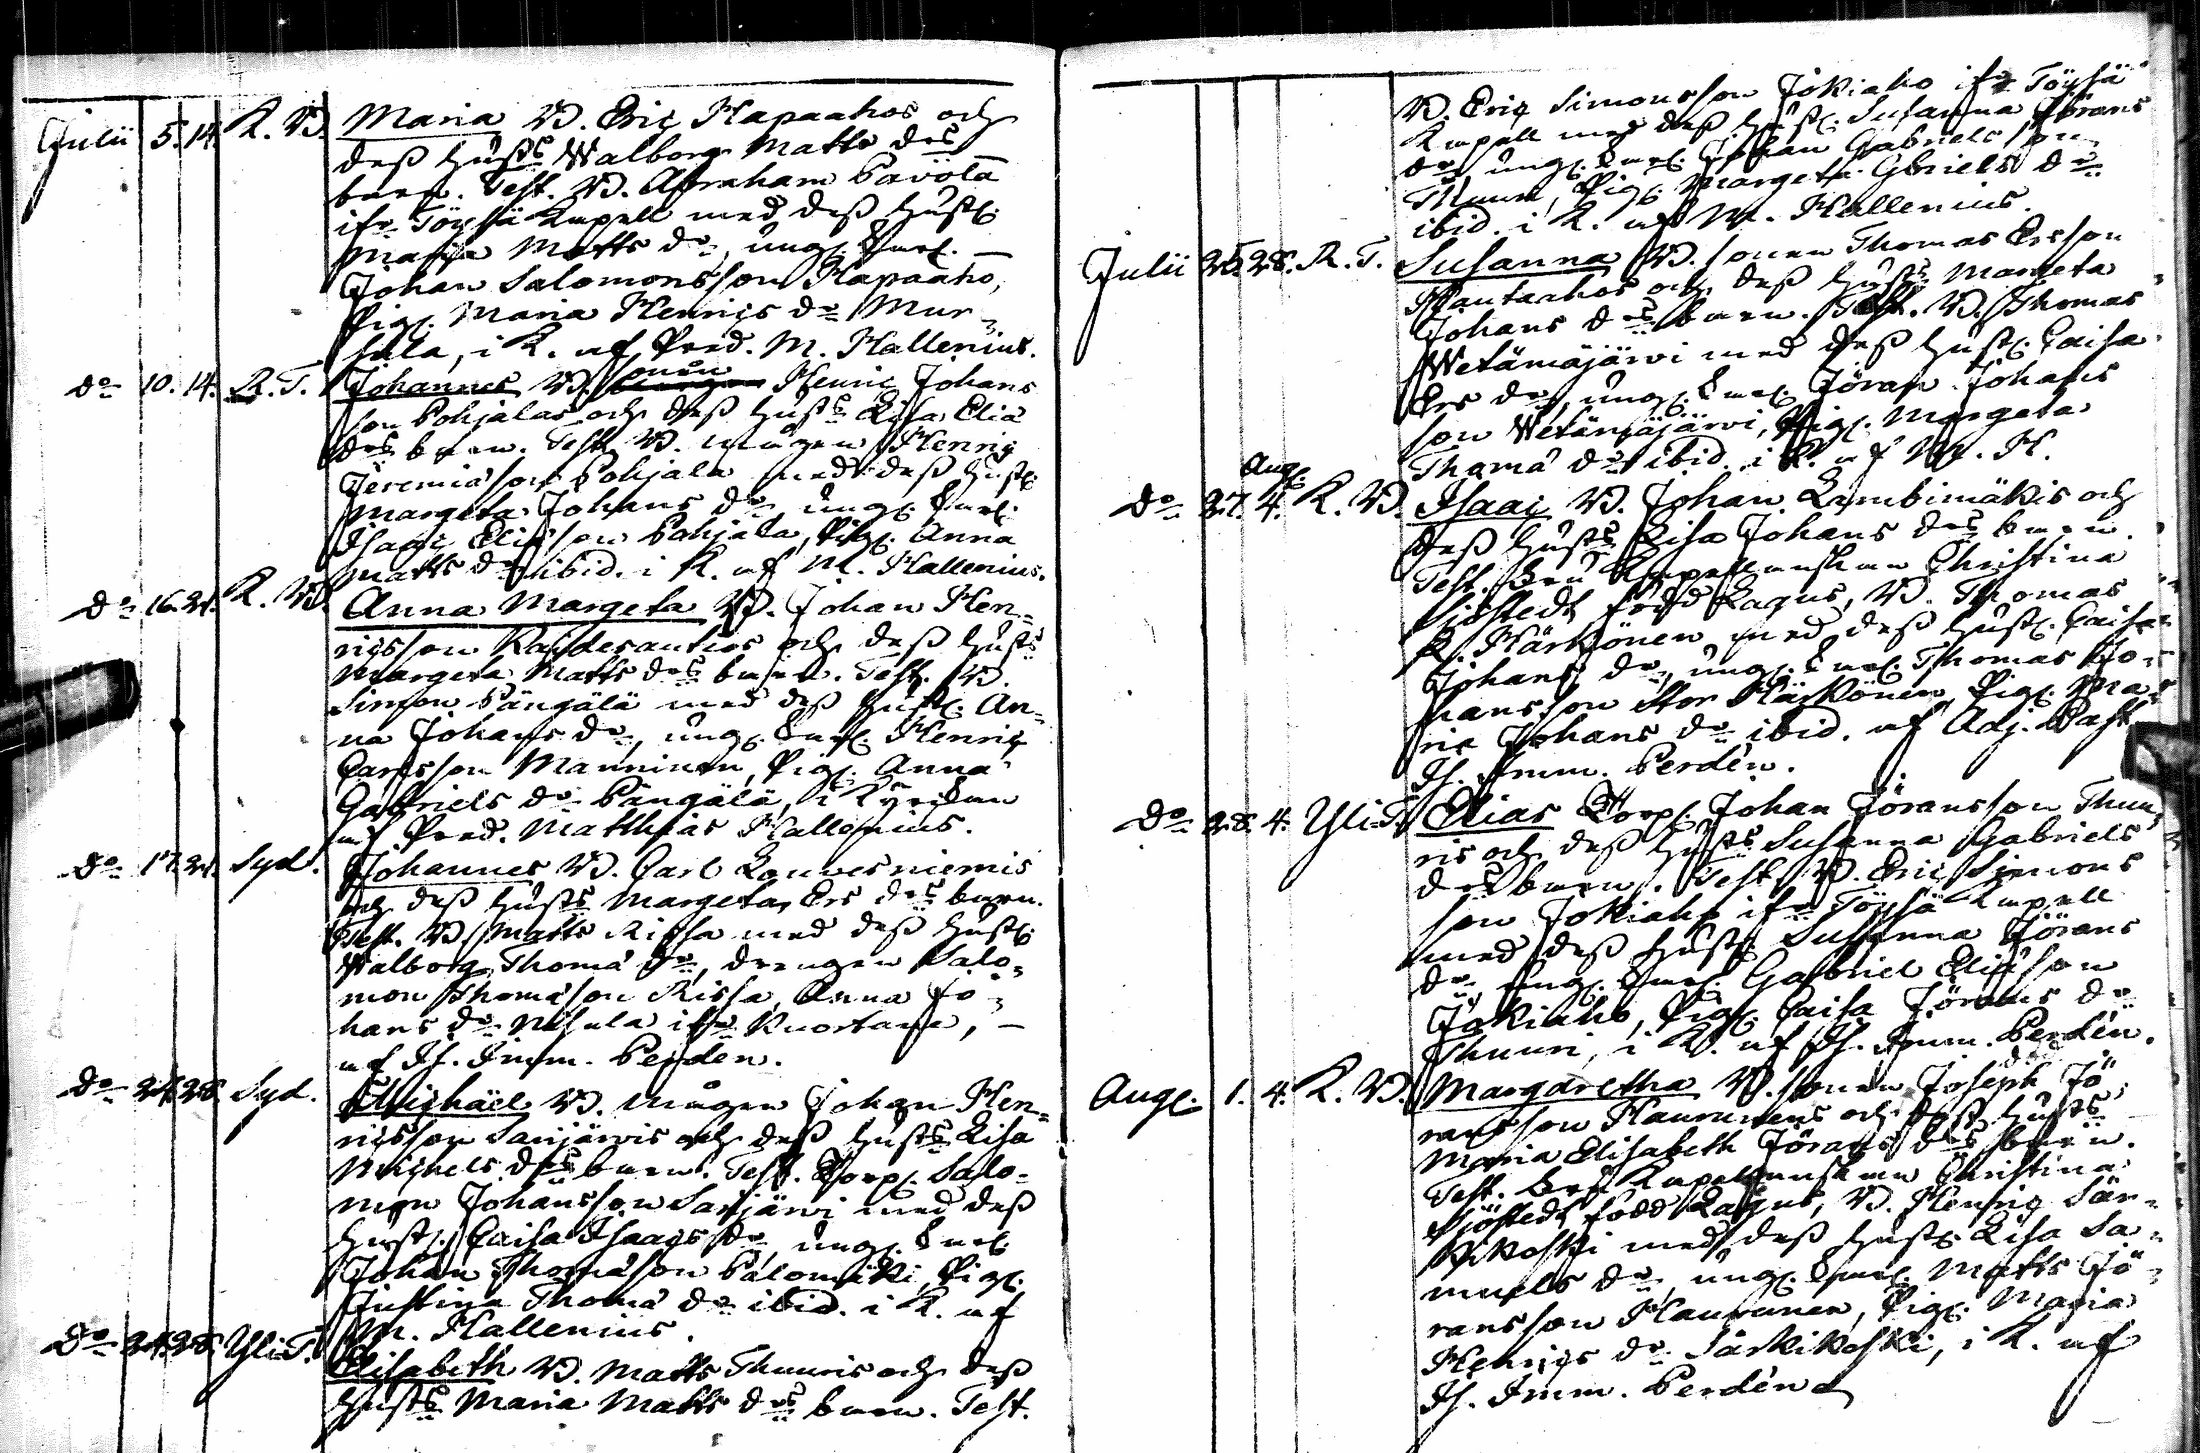 Julii 5. 14. K. B. Maria B. Eric Hapaahos och
dess hust:s Walborg Matts d:rs
barn. Test. B. Abraham Pavola
ifr. Töysä Kapell med dess hust:
Maria Matts d:r, ung. Karl.
Johan Salomonsson Hapaaho,
Pig. Maria Henrics d:r Mur-
sula, i K. af Pred. M. Hallenius.
d:o 10. 14. R. T. Johannes B. sonen Henric Johans
son Pohjalas och dess hust:s Lisa Eliæ
d:rs barn. Test. B. mågen Henric
Jeremiæson Pohjala med dess hust:
Margeta Johans d:r, ung. Karl.
Isaac Eliæson Pohjala, Pig. Anna
Matts d:r ibid. i K. af M. Hallenius.
d:o 16. 21. K. B. Anna Margeta B. Johan Hen-
ricsson Kandesantios och dess hust:s
Margeta Matts d:rs barn. Test. B.
Simon Pängälä med dess hust: An-
na Johans d:r, ung. Karl. Henric
Carlsson Manninen, Pig. Anna
Gabriels d:r Pängälä, i Kyrckan
af Pred. Matthias Hallenius.
d:o 17. 21. Syd. Johannes B. Carl Louvesniemis
och dess hust:s Margeta Ers d:rs barn.
Test. B. Matts Rissa med dess hust:
Walborg Thomæ d:r, drengen Salo-
mon Thomæson Rissa, Anna Jo-
hans d:r Nisula ifr. Kuortane,
af Is. Imm. Perdén.
d:o 24. 28. Syd. Michäel B. mågen Johan Hen-
ricsson Sarijärvis och dess hust:s Lisa
Michels d:rs barn. Test. Torp. Salo-
mon Johansson Sarijärvi med dess
hust: Caisa Isaacs d:r, ung. Karl.
Johan Thomæson Palomäki, Pig.
Justina Thomæ d:r ibid. i K. af
M. Hallenius.
d:o 24. 28. Yli-T. Elisabeth B. Matts Thuuris och dess
hust:s Maria Matts d:rs barn. Test.
B. Eric Simonsson Jokiaho ifr. Töysä
Kapell med dess hust: Susanna Jörans
d:r, ung. Karl. Johan Gabrielsson
Thuuri, Pig. Margeta Gabriels d:r
ibid. i K. af M. Hallenius.
Julii 25. 28. R. T. Susanna B. sonen Thomas Ersson
Rautaahos och dess hust:s Margeta
Johans d:rs barn. Test. B. Thomas
Wetämäjärvi med dess hust: Caisa
Ers d:r, ung. Karl. Jöran Johans
son Wetämäjärvi, Pig. Margeta
Thomæ d:r ibid. i K. af M. H.
Aug.
d:o 27. 4. K. B. Isaac B. Johan Lambimäkis och
dess hust:s Lisa Johans d:rs barn.
Test. Fru Kapellanskan Christina
Sjöstedt född Lagus, B. Thomas
L. Härkönen med dess hust: Caisa
Johans d:r, ung. Karl. Thomas Jo-
hansson Stor Härkönen, Pig. Ma-
ria Johans d:r ibid. af Adj. Past.
Is. Imm. Perdén.
d:o 28. 4. Yli-T. Elias Torp. Johan Jöransson Thuu-
ris och dess hust:s Susanna Gabriels
d:rs barn. Test. B. Eric Simons
son Jokiaho ifr. Töysä Kapell
med dess hust: Susanna Jörans
d:r, ung. Karl. Gabriel Eliæson
Jokiaho, Pig. Caisa Jörans d:r
Thuuri, i K. af Is. Imm. Perdén.
Aug. 1. 4. K. B. Margaretha B. sonen Joseph Jö-
ransson Haurunens och dess hust:s
Maria Elisabeth Jörans d:rs barn.
Test. Fru Kapellanskan Christina
Sjöstedt född Lagus, B. Henric Sär-
kikoski med dess hust: Lisa Sa-
muels d:r, ung. Karl. Matts Jö-
ransson Haurunen, Pig. Maria
Henrics d:r Särkikoski, i K. af
Is. Imm. Perdén